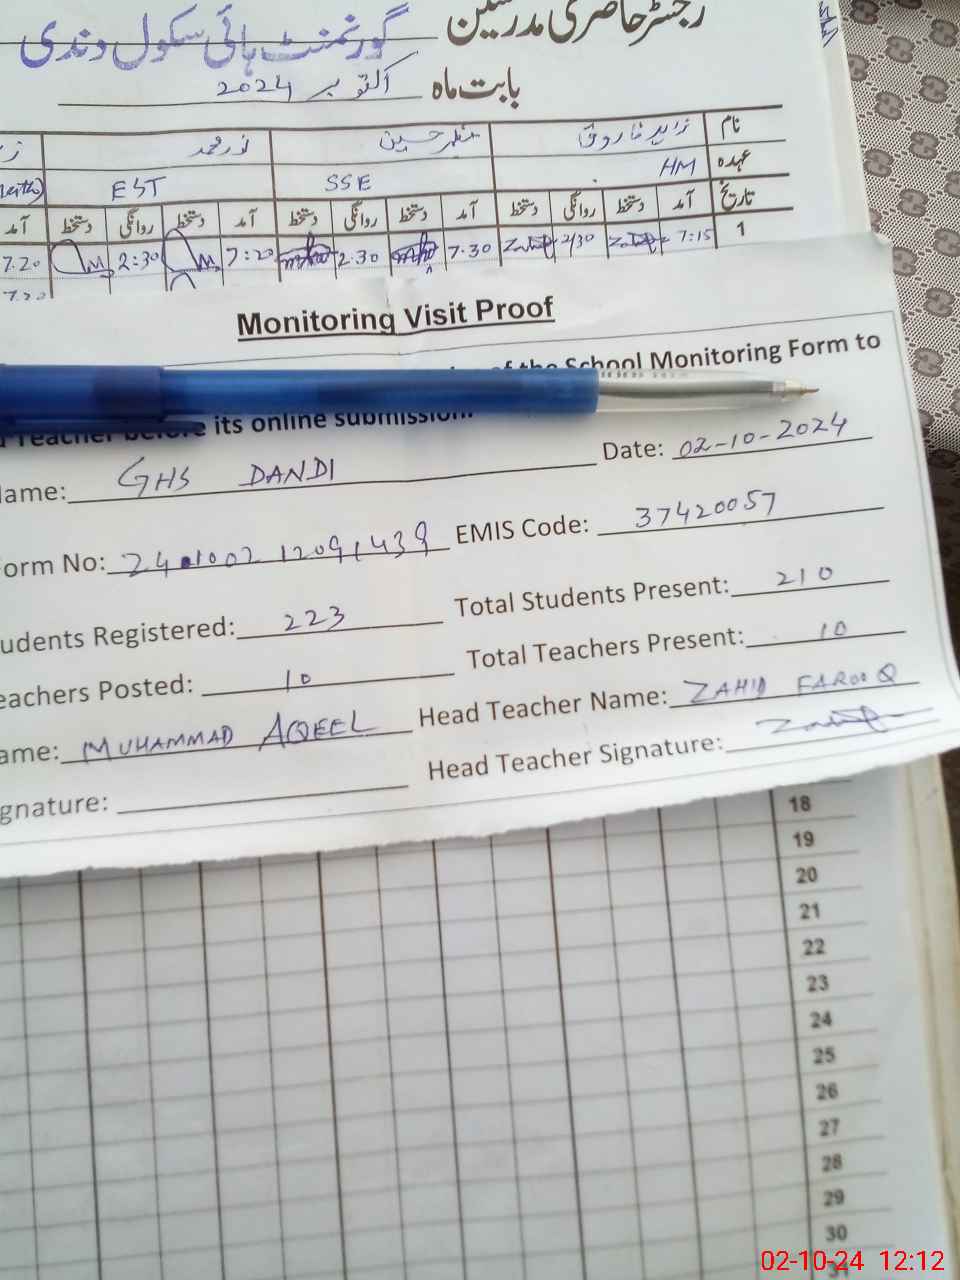 رجسٹر حاضری مدرسین گورنمنٹ ہائی سکول ڈنڈی
بابت ماہ اکتوبر 2024
نام زاہد فاروق مظہر حسین نور محمد
عہدہ HM SSE EST
تاریخ آمد دستخط روانگی دستخط آمد دستخط روانگی دستخط آمد دستخط روانگی دستخط آمد
1 7:15 2/30 7.30 2.30 7:20 2:30 7.20
Monitoring Visit Proof
of the School Monitoring Form to
Teacher before its online submission.
ame: GHS DANDI Date: 02-10-2024
orm No: EMIS Code: 37420057
udents Registered: 223 Total Students Present: 210
eachers Posted: 10 Total Teachers Present: 10
ame: MUHAMMAD AQEEL Head Teacher Name: ZAHID FAROOQ
gnature: Head Teacher Signature:
18
19
20
21
22
23
24
25
26
27
28
29
30
31
02-10-24 12:12